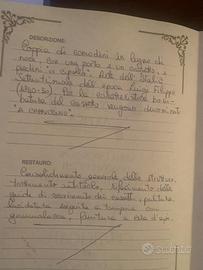 DESCRIZIONE:
Coppia di comodini in legno di
noce, con una porta e un cassetto, e
piedini "a cipolla". Arte dell'Italia
Settentrionale dell'epoca Luigi Filippo
(1830-50). Per la caratteristica
del cassetto vengono denominati
RESTAURO:
Consolidamento generale della struttura,
trattamento antitarlo, rifacimento delle
guide di scorrimento dei cassetti, pulitura,
lucidatura eseguita a tampone con
gommalacca, finitura a cera d'api.
Subito.it